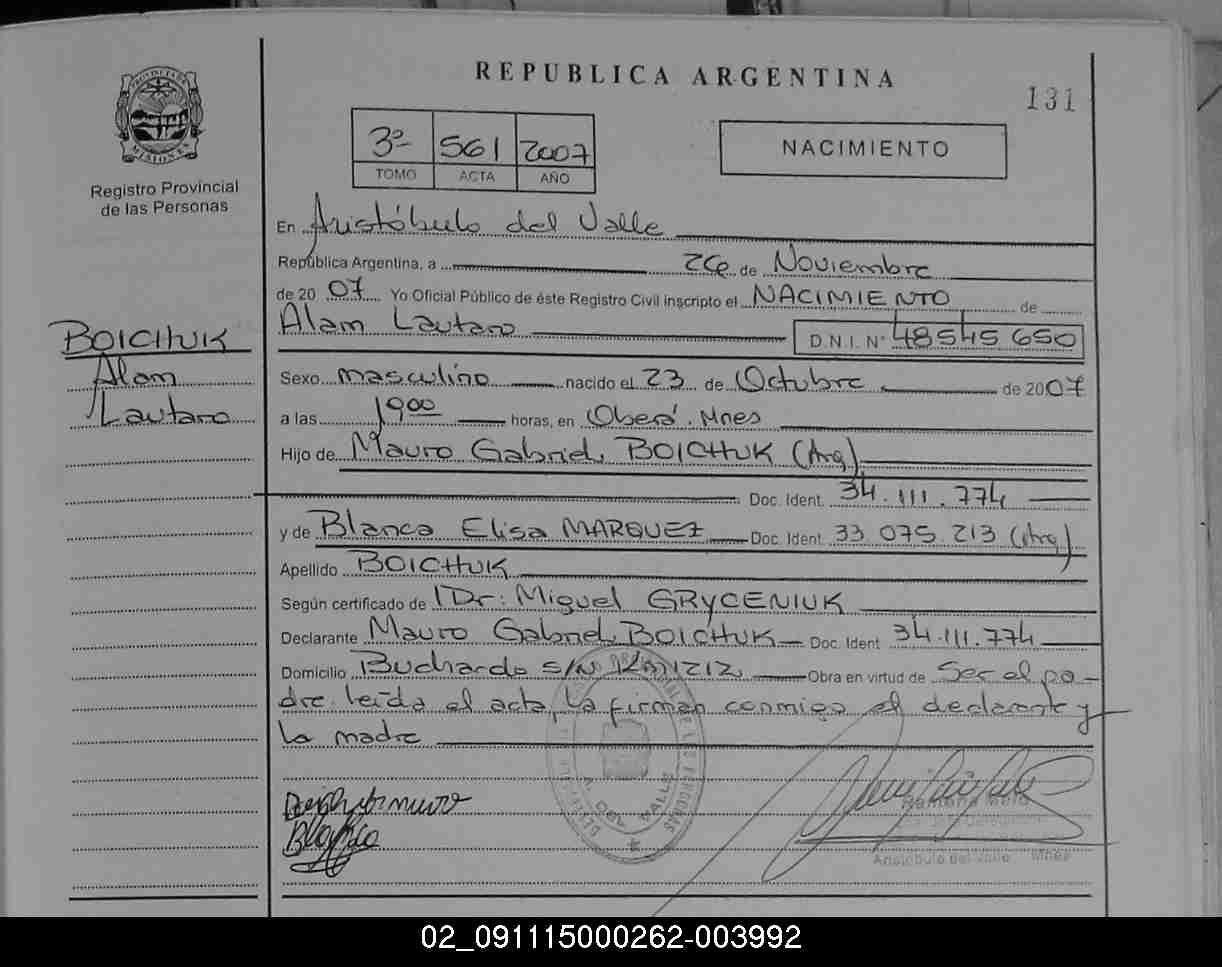 REPUBLICA ARGENTINA
131
PROVINCIA DE
MISIONES
Registro Provincial
de las Personas
3º 561 2007
TOMO ACTA AÑO
NACIMIENTO
En Aristóbulo del Valle
República Argentina, a 26 de Noviembre
de 20 07 Yo Oficial Público de éste Registro Civil inscripto el NACIMIENTO de
Alam Lautaro D.N.I. Nº 48545650
BOICHUK
Alam
Lautaro
Sexo masculino nacido el 23 de Octubre de 2007
a las 19 00 horas, en Oberá. Mnes
Hijo de Mauro Gabriel BOICHUK (Arg)
Doc. Ident. 34.111.774
y de Blanca Elisa MARQUEZ Doc. Ident. 33 075 213 (Arg)
Apellido BOICHUK
Según certificado de Dr: Miguel GRYCENIUK
Declarante Mauro Gabriel BOICHUK Doc. Ident 34.111.774
Domicilio Buchardo s/Nº Km 1212 Obra en virtud de Ser el pa-
dre leída el acta, la firman conmigo el declarante y
la madre
Aristóbulo del Valle Mnes
02_091115000262-003992